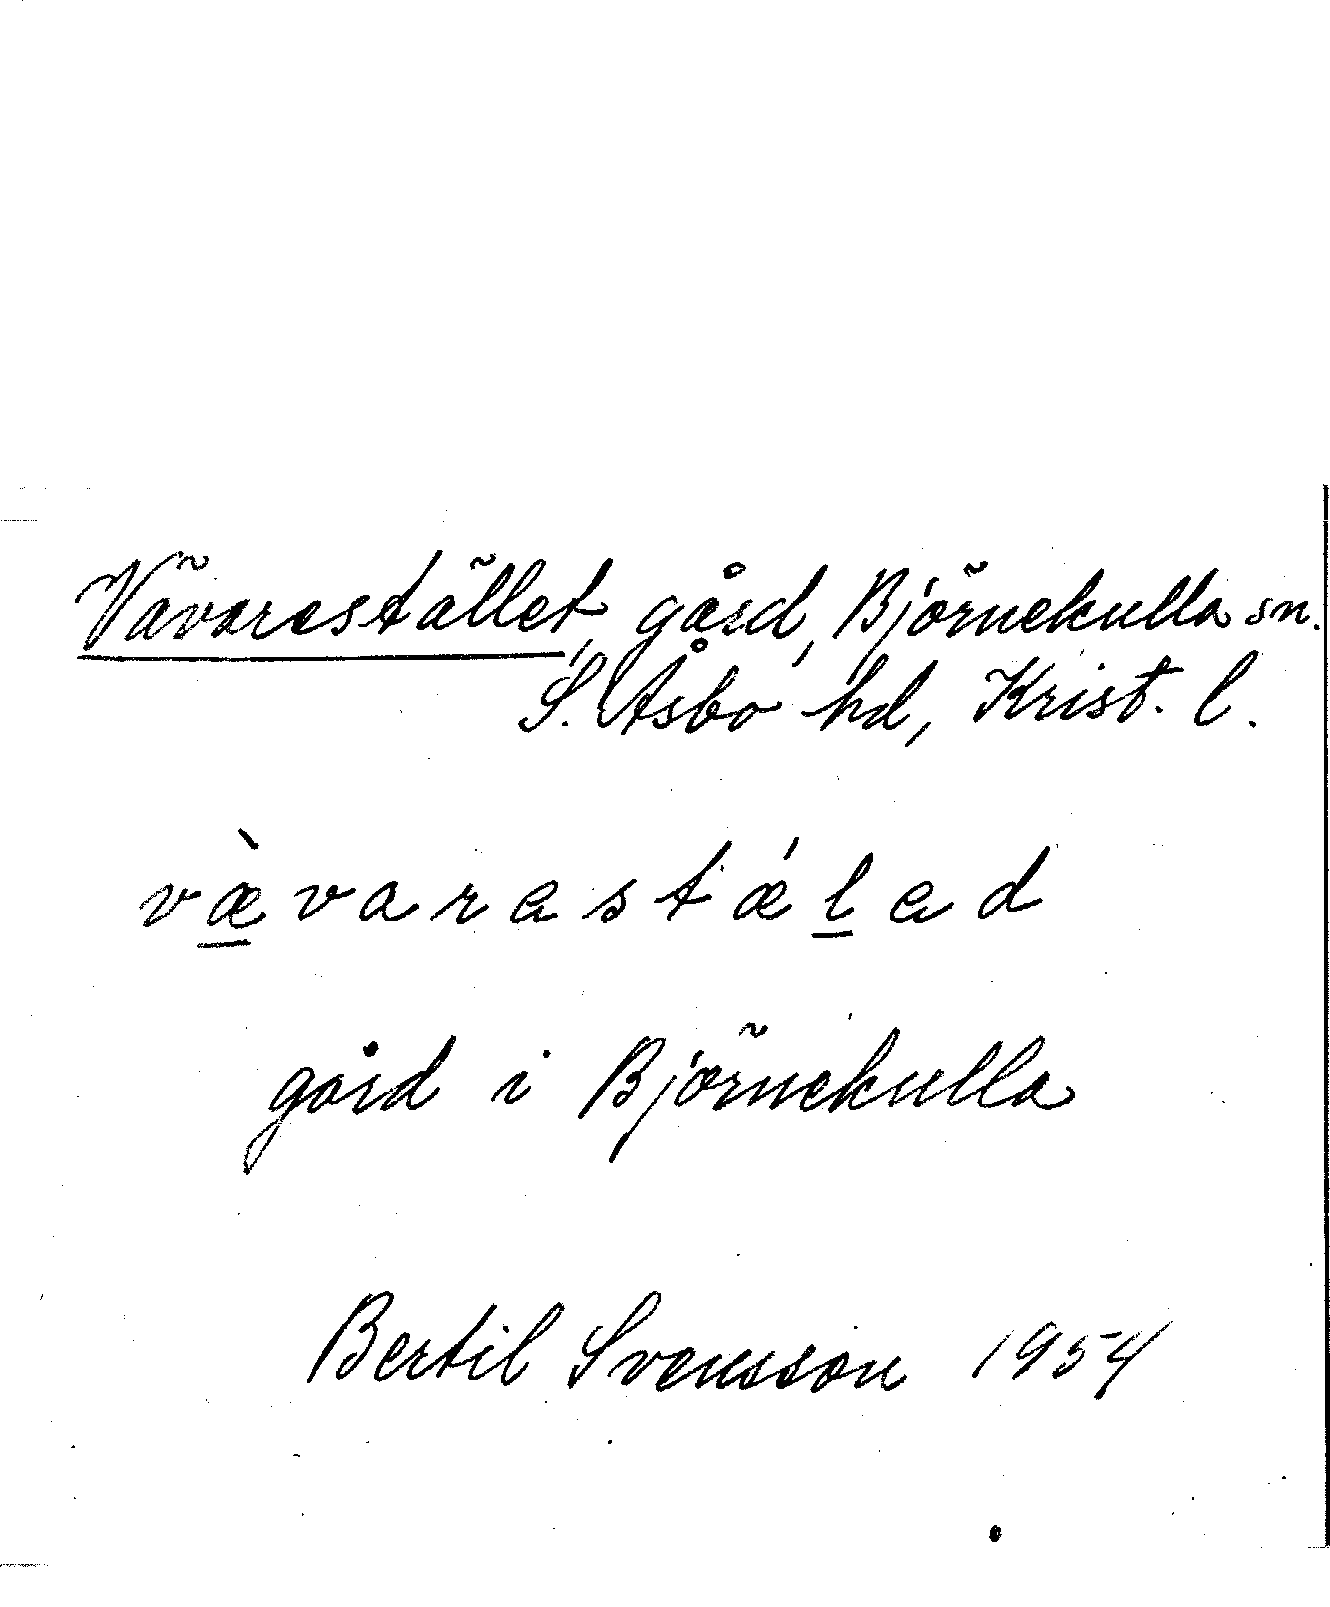 Vävarestället, gård, Björnekulla sn.
S. Åsbo hd, Krist. l.
væ̠̀varastǽl̠ad
gård i Björnekulla
Bertil Svensson 1954